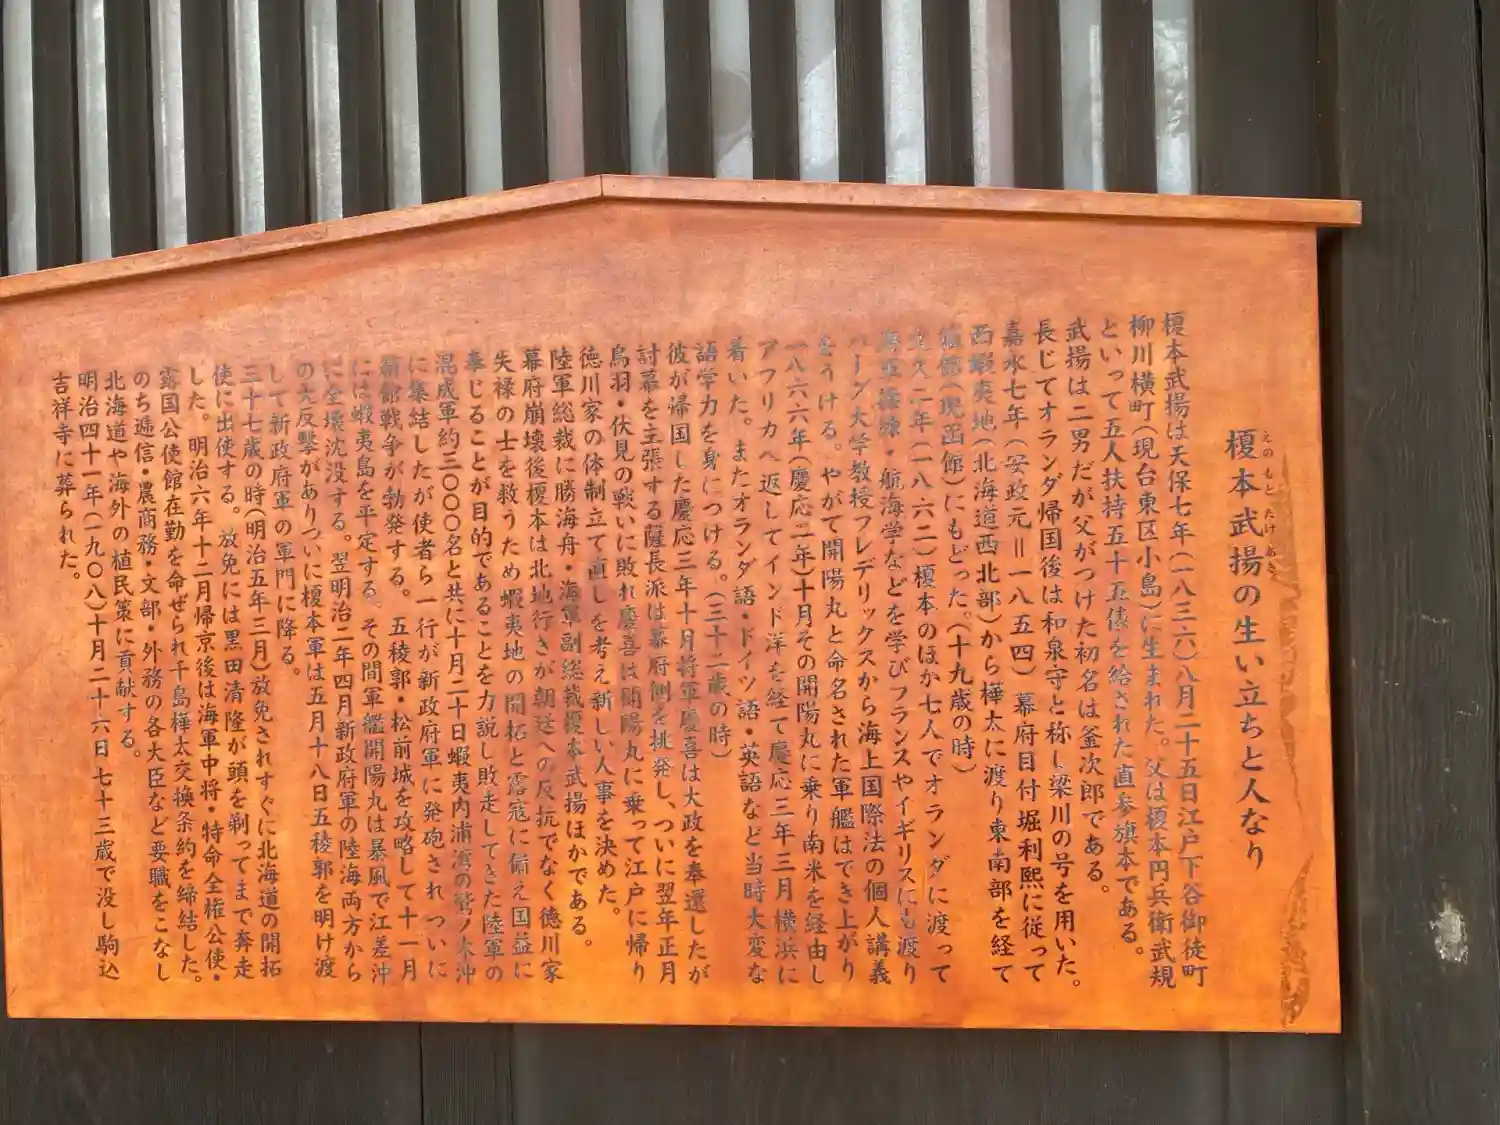 榎本武揚の生い立ちと人なり
えのもと たけ あき
榎本武揚は天保七年(一八三六)八月二十五日江戸下谷御徒町
柳川横町(現台東区小島)に生まれた。父は榎本円兵衛武規
といって五人扶持五十五俵を給された直参旗本である。
武揚は二男だが父がつけた初名は釜次郎である。
長じてオランダ帰国後は和泉守と称し梁川の号を用いた。
嘉永七年(安政元=一八五四)幕府目付堀利熙に従って
西蝦夷地(北海道西北部)から樺太に渡り東南部を経て
箱館(現函館)にもどった。(十九歳の時)
文久二年(一八六二)榎本のほか七人でオランダに渡って
・航海学などを学びフランスやイギリスにも渡り
ハーグ大学教授フレデリックスから海上国際法の個人講義
をうける。やがて開陽丸と命名された軍艦はでき上がり
一八六六年(慶応二年)十月その開陽丸に乗り南米を経由し
アフリカへ返してインド洋を経て慶応三年三月横浜に
着いた。またオランダ語・ドイツ語・英語など当時大変な
語学力を身につける。(三十二歳の時)
彼が帰国した慶応三年十月将軍慶喜は大政を奉還したが
討幕を主張する薩長派は幕府側を挑発し、ついに翌年正月
鳥羽・伏見の戦いに敗れ慶喜は開陽丸に乗って江戸に帰り
徳川家の体制立て直しを考え新しい人事を決めた。
陸軍総裁に勝海舟・海軍副総裁榎本武揚ほかである。
幕府崩壊後榎本は北地行きが朝廷への反抗でなく徳川家
失禄の士を救うため蝦夷地の開拓と露寇に備え国益に
奉じることが目的であることを力説し敗走してきた陸軍の
混成軍約三〇〇〇名と共に十月二十日蝦夷内浦湾の鷲ノ木沖
に集結したが使者ら一行が新政府軍に発砲され ついに
箱館戦争が勃発する。五稜郭・松前城を攻略して十一月
には蝦夷島を平定する。その間軍艦開陽丸は暴風で江差沖
に全壊沈没する。翌明治二年四月新政府軍の陸海両方から
の大反撃がありついに榎本軍は五月十八日五稜郭を明け渡
して新政府軍の軍門に降る。
三十七歳の時(明治五年三月)放免されすぐに北海道の開拓
使に出使する。放免には黒田清隆が頭を剃ってまで奔走
した。明治六年十二月帰京後は海軍中将・特命全権公使・
露国公使館在勤を命ぜられ千島樺太交換条約を締結した。
のち逓信・農商務・文部・外務の各大臣など要職をこなし
北海道や海外の植民策に貢献する。
明治四十一年(一九〇八)十月二十六日七十三歳で没し駒込
吉祥寺に葬られた。